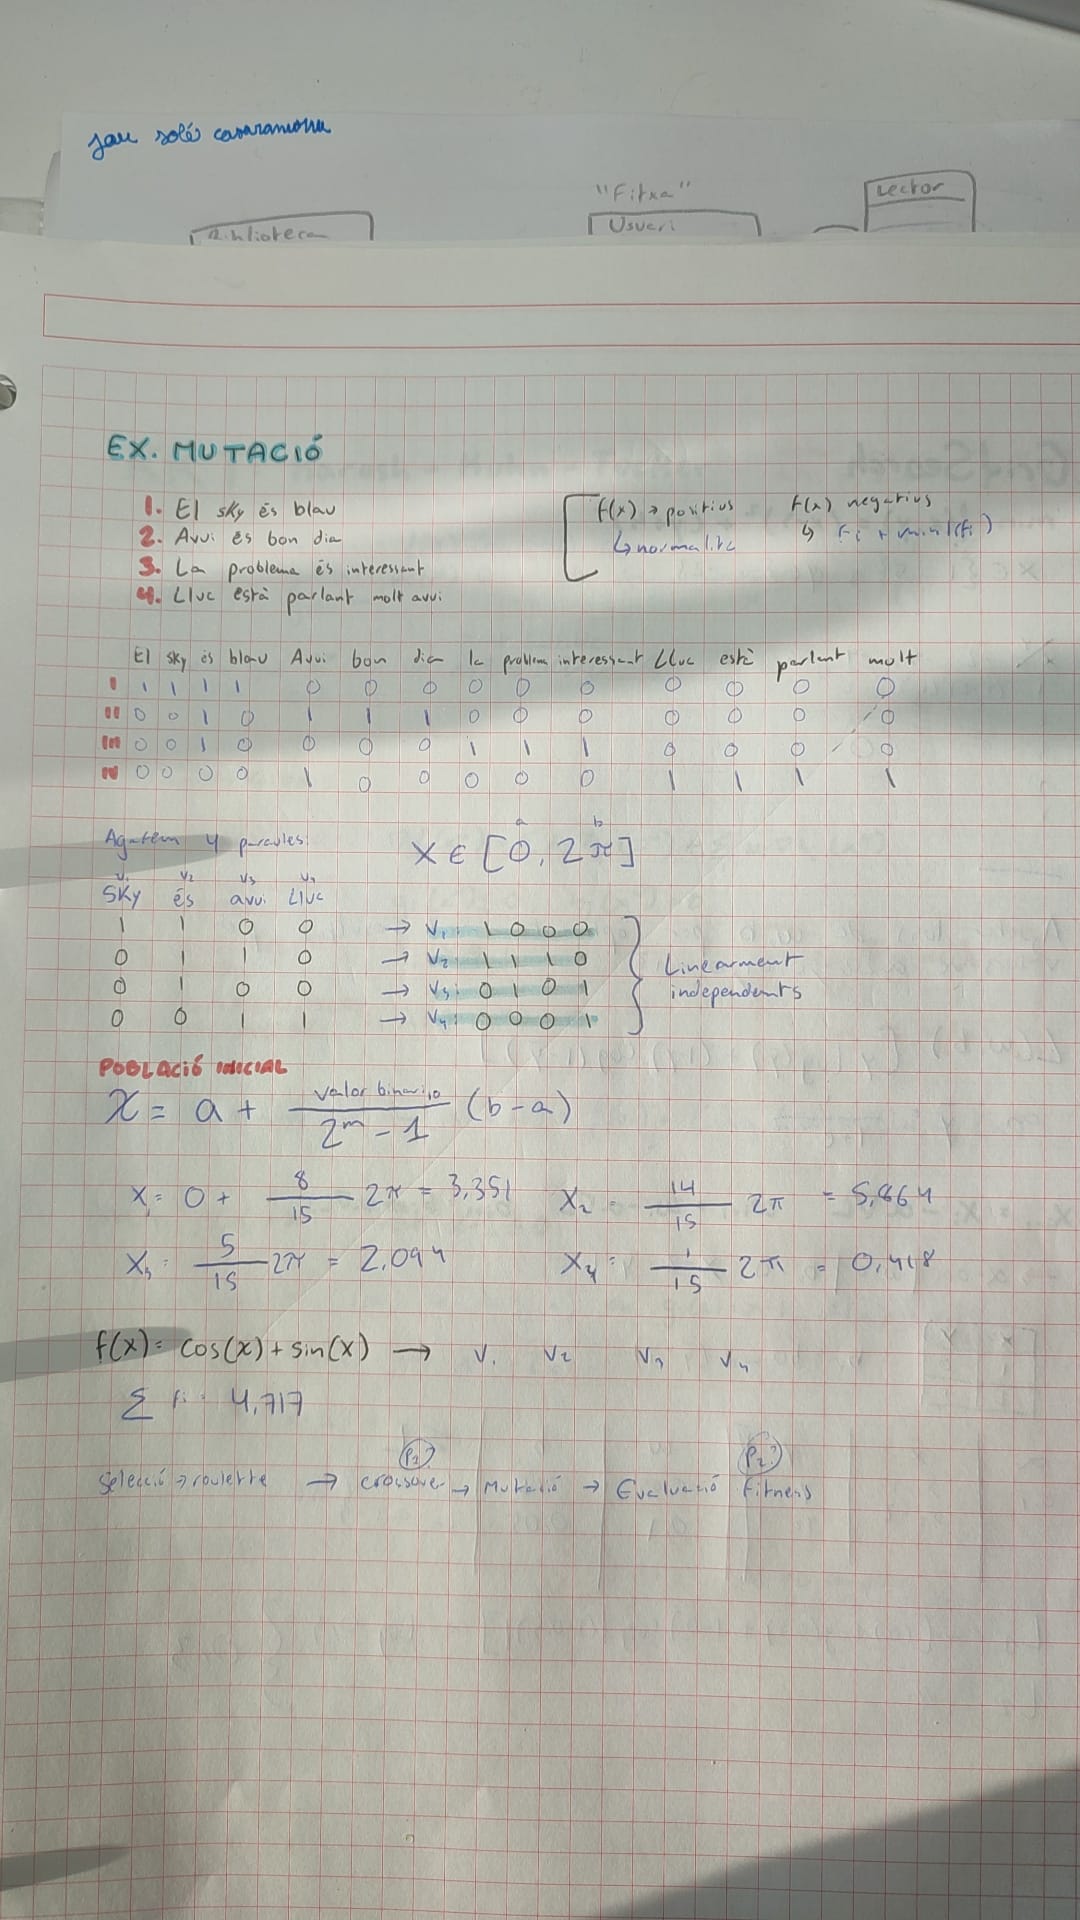 jau solé casaramona
"Fitxa"
Lector
Biblioteca
Usuari
EX. MUTACIÓ
1. El sky és blau
2. Avui és bon dia
3. La problema és interessant
4. Lluc està parlant molt avui
f(x) → positius
↳ normalitz
f(x) negatius
↳ fi + min|(fi)
El sky és blau Avui bon dia la problema interessant Lluc està parlant molt
I 1 1 1 1 0 0 0 0 0 0 0 0 0 0
II 0 0 1 0 1 1 1 0 0 0 0 0 0 0
III 0 0 1 0 0 0 0 1 1 1 0 0 0 0
IV 0 0 0 0 1 0 0 0 0 0 1 1 1 1
Agafem 4 paraules:
a b
X ∈ [0, 2π]
V1 V2 V3 V4
SKY és avui Lluc
1 1 0 0 → V1: 1 0 0 0
0 1 1 0 → V2: 1 1 1 0
0 1 0 0 → V3: 0 1 0 1
0 0 1 1 → V4: 0 0 0 1
Linearment
independents
POBLACIÓ INICIAL
x = a + valor binario / 2^m - 1 (b - a)
X1 = 0 + 8/15 2π = 3,351 X2 = 14/15 2π = 5,864
X3 = 5/15 2π = 2,094 X4 = 1/15 2π = 0,418
f(x) = cos(x) + sin(x) → V1 V2 V3 V4
Σ fi = 4,717
P1? P2?
Selecció → roulette → crossover → Mutació → Evaluació fitness